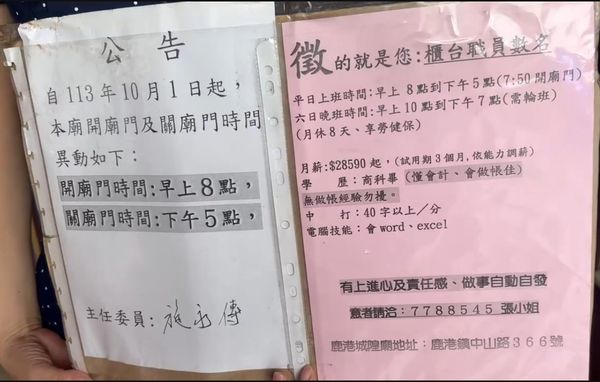 公告
自113年10月1日起,
本廟開廟門及關廟門時間
異動如下:
開廟門時間:早上8點,
關廟門時間:下午5點,
主任委員:
徵的就是您:櫃台職員數名
平日上班時間:早上 8點到下午5點(7:50開廟門)
六日晚班時間:早上10點到下午7點(需輪班)
(月休8天、享勞健保)
月薪:$28590起,(試用期3個月,依能力調薪)
學 歷:商科畢(懂會計、會做帳佳)
無做帳經驗勿擾。
中 打:40字以上/分
電腦技能:會word、excel
有上進心及責任感、做事自動自發
意者請洽:7788545 張小姐
鹿港城隍廟地址:鹿港鎮中山路366號